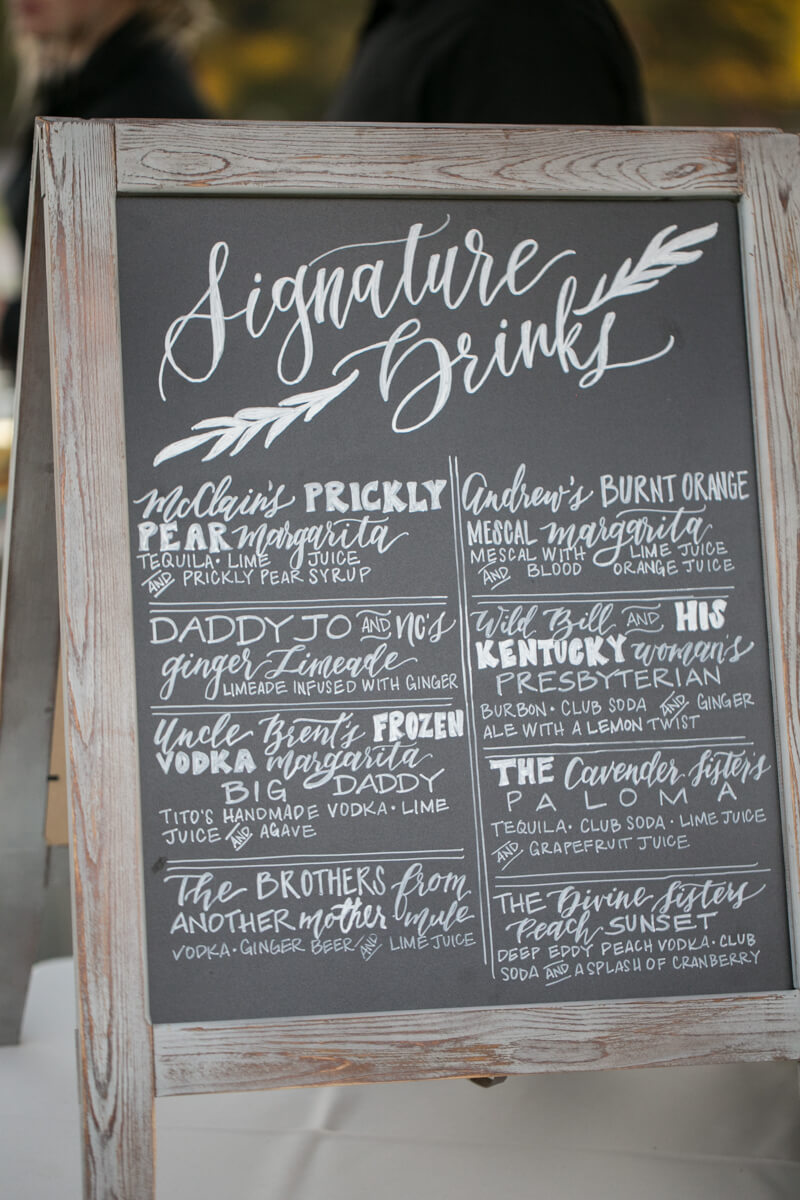 Signature
Drinks
McClain's PRICKLY
PEAR margarita
TEQUILA • LIME JUICE
AND PRICKLY PEAR SYRUP
DADDY JO AND NC's
ginger Limeade
LIMEADE INFUSED WITH GINGER
Uncle Brent's FROZEN
VODKA margarita
BIG DADDY
TITO'S HANDMADE VODKA • LIME
JUICE AND AGAVE
The BROTHERS from
ANOTHER mother mule
VODKA • GINGER BEER AND LIME JUICE
Andrew's BURNT ORANGE
MESCAL margarita
MESCAL WITH LIME JUICE
AND BLOOD ORANGE JUICE
Wild Bill AND HIS
KENTUCKY woman's
PRESBYTERIAN
BURBON • CLUB SODA AND GINGER
ALE WITH A LEMON TWIST
THE Cavender Sister's
PALOMA
TEQUILA • CLUB SODA • LIME JUICE
AND GRAPEFRUIT JUICE
THE Divine Sisters
Peach SUNSET
DEEP EDDY PEACH VODKA • CLUB
SODA AND A SPLASH OF CRANBERRY